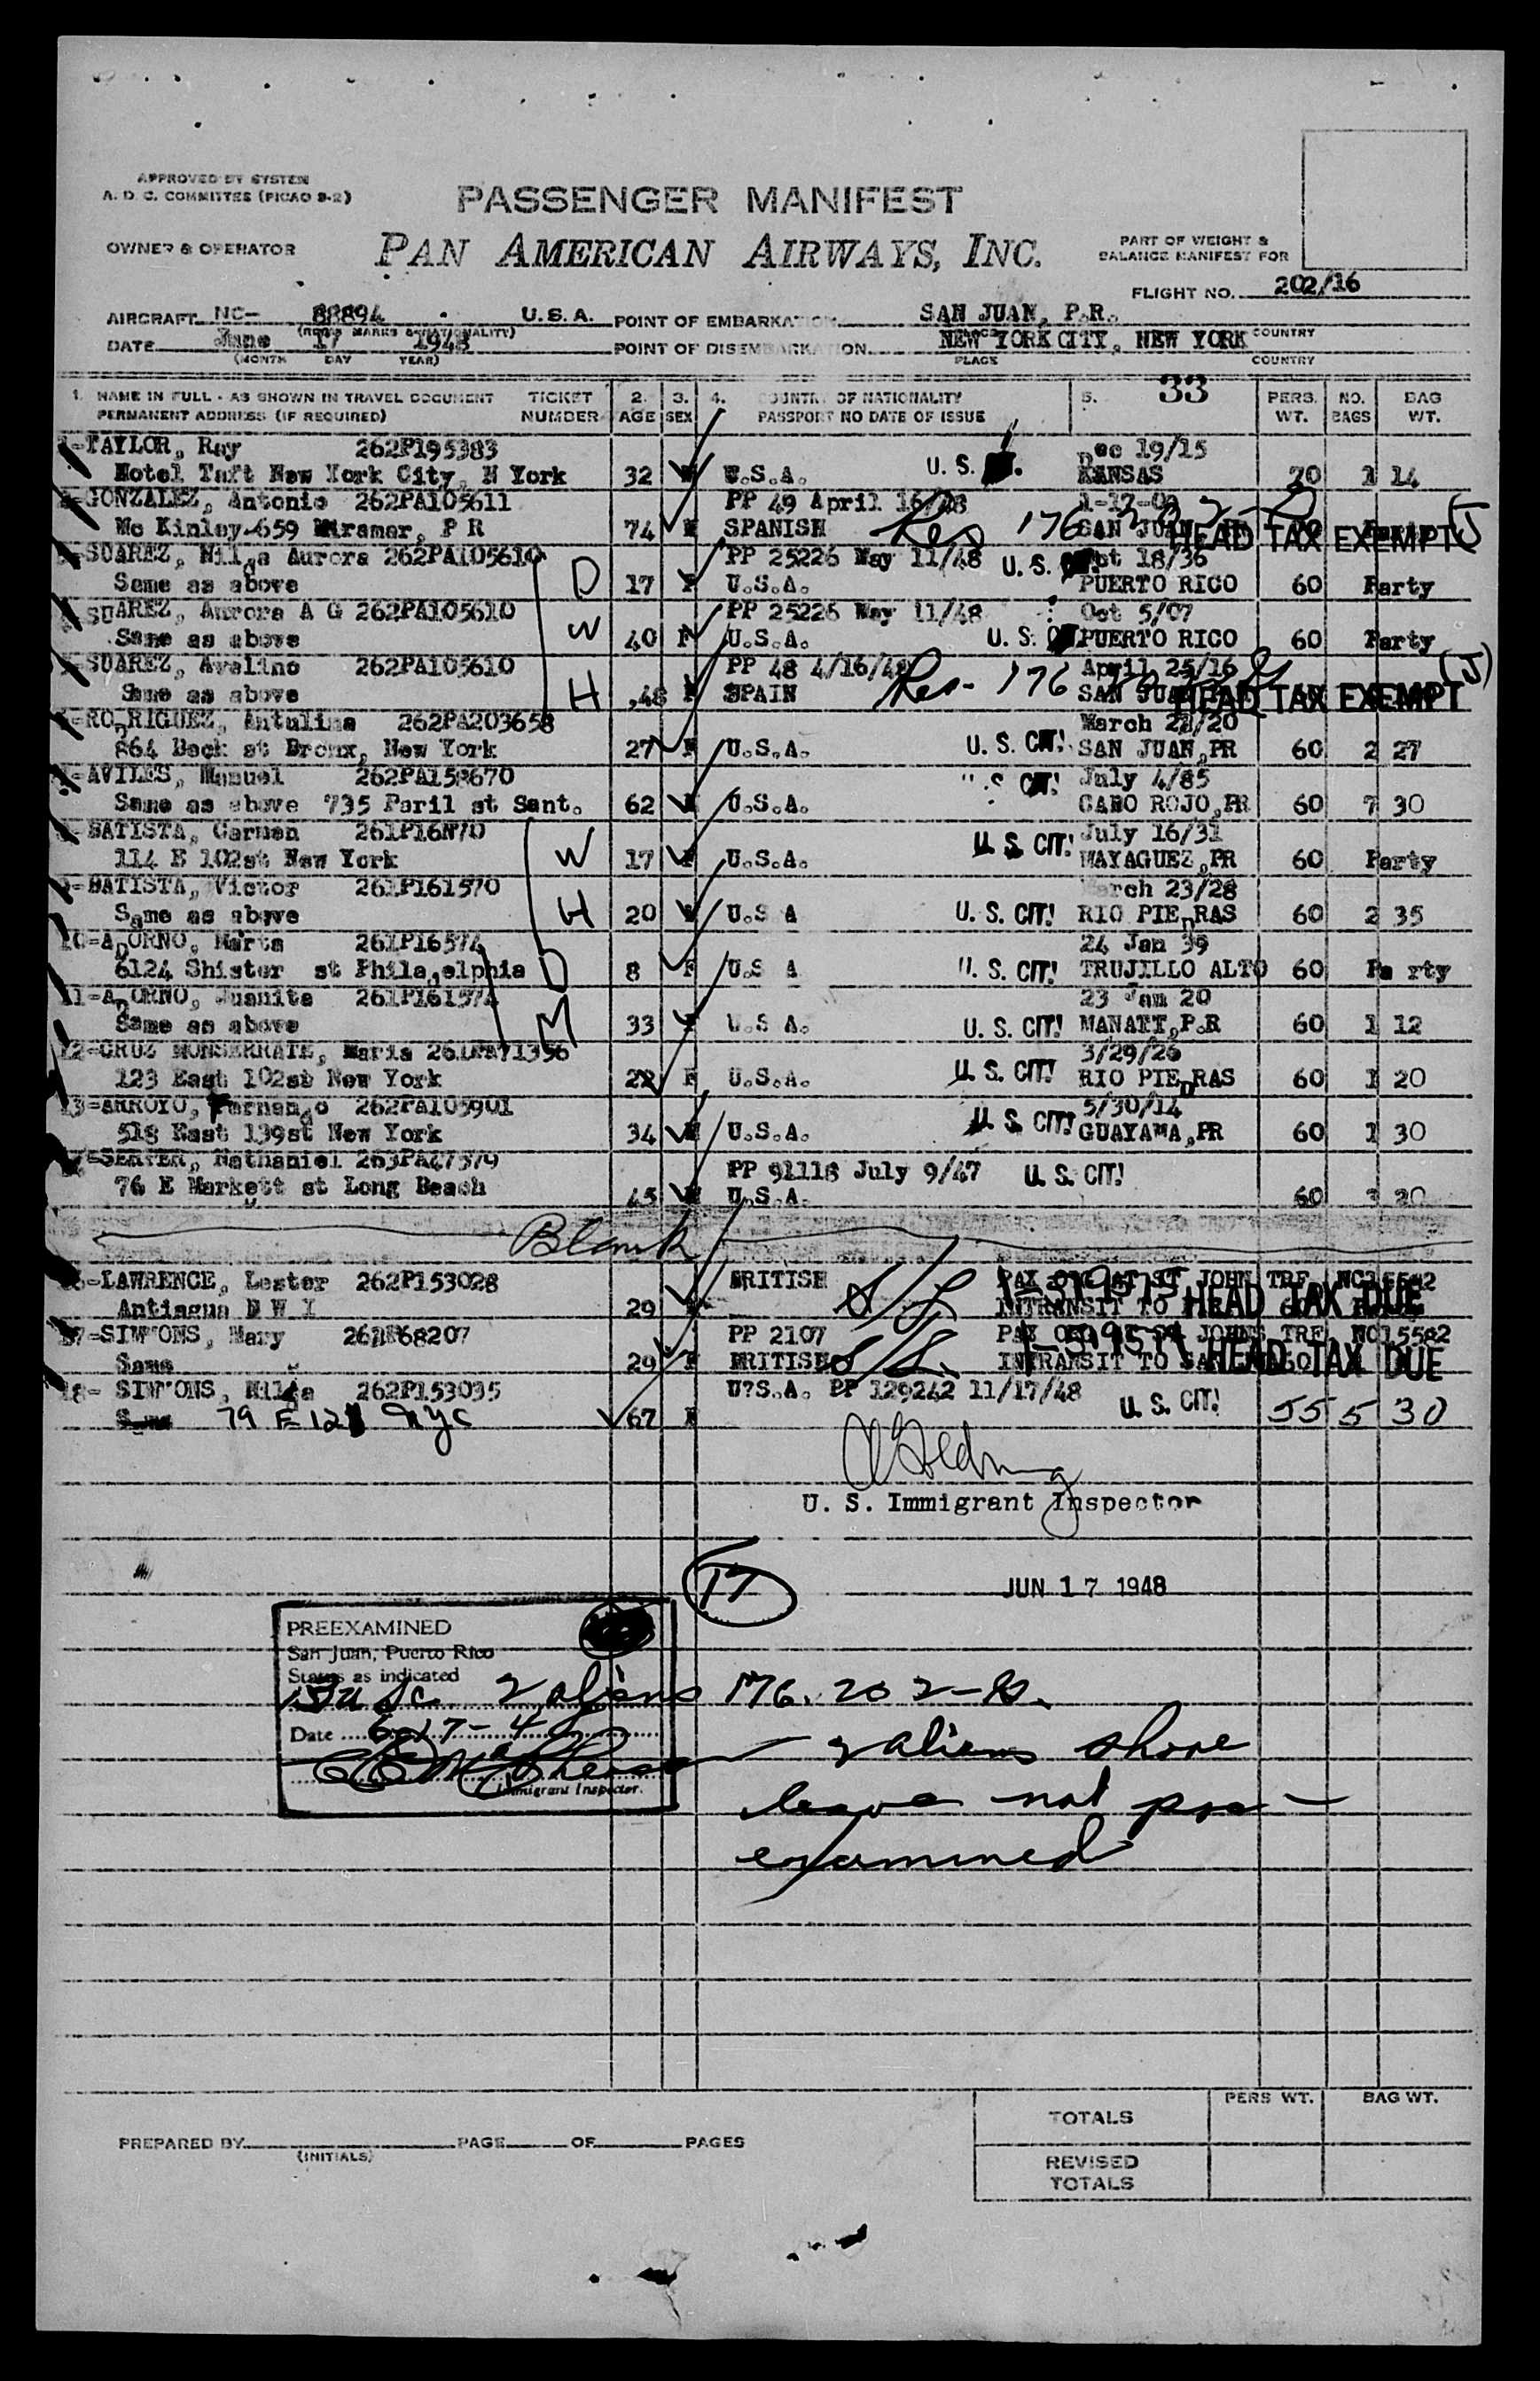 APPROVED BY SYSTEM
A. D. C. COMMITTEE (PICAO 9-2)
PASSENGER MANIFEST
OWNER & OPERATOR PAN AMERICAN AIRWAYS, INC.
PART OF WEIGHT &
BALANCE MANIFEST FOR
FLIGHT NO. 202/16
AIRCRAFT NC- 88894 U.S.A. POINT OF EMBARKATION SAN JUAN, P.R.
DATE June 17 1948 POINT OF DISEMBARKATION NEW YORK CITY, NEW YORK COUNTRY
(MONTH DAY YEAR) PLACE COUNTRY
1. NAME IN FULL - AS SHOWN IN TRAVEL DOCUMENT TICKET 2. 3. 4. COUNTRY OF NATIONALITY 5. 33 PERS. NO. BAG
PERMANENT ADDRESS (IF REQUIRED) NUMBER AGE SEX PASSPORT NO DATE OF ISSUE WT. BAGS WT.
TAYLOR, Ray 262P195383 Dec 19/15
Hotel Taft New York City, N York 32 U.S.A. U.S. KANSAS 70 1 14
GONZALEZ, Antonio 262PA105611 PP 49 April 16/48
Mc Kinley 659 Miramar, P R 74 SPANISH Res 176 SAN JUAN HEAD TAX EXEMPT (J)
SUAREZ, Nilda Aurora 262PA105610 PP 25226 May 11/48 U.S. Oct 18/36
Same as above D 17 F U.S.A. PUERTO RICO 60 Party
SUAREZ, Aurora A G 262PA105610 PP 25226 May 11/48 Oct 5/07
Same as above W 40 F U.S.A. U.S. PUERTO RICO 60 Party
SUAREZ, Avelino 262PA105610 PP 48 4/16/48 April 25/16
Same as above H 48 SPAIN Res- 176 SAN JUAN HEAD TAX EXEMPT (J)
RODRIGUEZ, Antulina 262PA203658 March 21/20
864 Beck st Bronx, New York 27 F U.S.A. U. S. CIT! SAN JUAN,PR 60 2 27
AVILES, Manuel 262PA158670 July 4/85
Same as above 735 Paril st Sant. 62 U.S.A. CIT! CABO ROJO,PR 60 7 30
BATISTA, Carmen 261P16N70 July 16/31
114 E 102st New York W 17 U.S.A. U. S. CIT! MAYAGUEZ,PR 60 Party
BATISTA, Victor 261P161570 March 23/28
Same as above H 20 U.S A U. S. CIT! RIO PIEDRAS 60 2 35
10-ADORNO, Marta 261P16574 24 Jan 39
6124 Shister st Philadelphia D 8 F U.S A U. S. CIT! TRUJILLO ALTO 60 Party
11-ADORNO, Juanita 261P161574 23 Jan 20
Same as above M 33 F U.S A. U. S. CIT! MANATI,P.R 60 1 12
12-CRUZ MONSERRATE, Maria 3/29/26
123 East 102st New York 22 F U.S.A. U. S. CIT! RIO PIEDRAS 60 1 20
13-ARROYO, Fernando 262PA105901 5/30/14
518 East 139st New York 34 U.S.A. U. S. CIT! GUAYAMA,PR 60 1 30
Nathaniel 263PA47579 PP 91118 July 9/47 U. S. CIT!
76 E Markett st Long Beach 45 U.S.A. 60 3 20
Blank
LAWRENCE, Lester 262P153028 BRITISH S/L ST JOHN TRF NO15582
Antiagua B W I 29 INTRANSIT TO HEAD TAX DUE
17-SIMMONS, Mary PP 2107 JOHNS TRF NO15582
Same 29 F BRITISH S/L INTRANSIT TO HEAD TAX DUE
18- SIMMONS, Hilda 262P153035 U?S.A. PP 129242 11/17/48
Same 79 E 121 NYC 67 F U. S. CIT! 55 5 30
U. S. Immigrant Inspector
17 JUN 17 1948
PREEXAMINED
San Juan, Puerto Rico
Status as indicated
2 aliens 176. 202-
Date 6-17-4
Immigrant Inspector.
2 aliens shore
leave not pre-
examined
TOTALS PERS WT. BAG WT.
PREPARED BY PAGE OF PAGES
(INITIALS)
REVISED
TOTALS